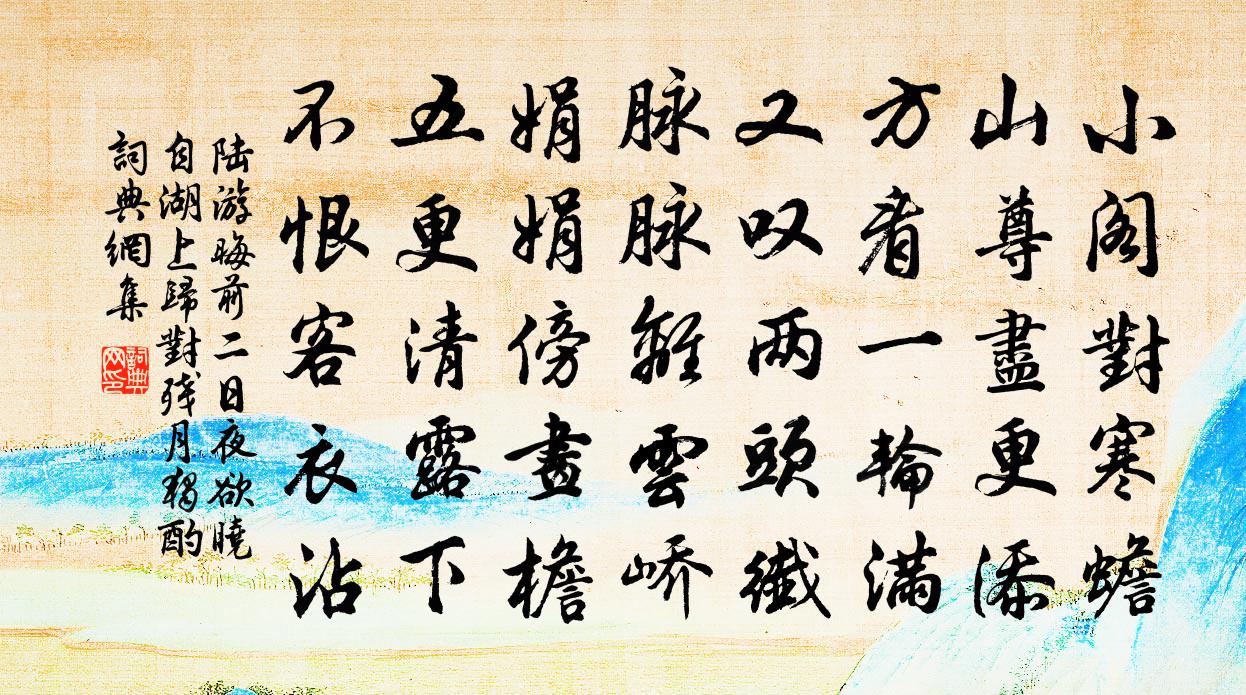 小阁對寒蟾
山尊盡更添
方看一輪满
又叹两頭纖
脉脉離雲峤
娟娟傍畫檐
五更清露下
不恨客衣沾
陆游晦前二日夜欲曉
自湖上歸對残月獨酌
詞典網集
詞典网印